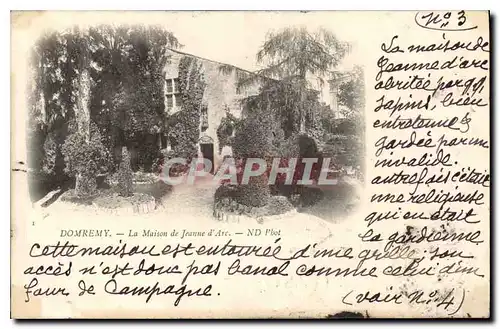 N°. 3
La maison de
Jeanne d'arc
abritée par qq
sapins, bien
entretenue &
gardée par un
invalide.
autrefois c'était
une religieuse
qui en était
la gardienne
CPA-PHIL
DOMREMY. — La Maison de Jeanne d'Arc. — ND Phot
Cette maison est entourée d'une grille, son
accès n'est donc pas banal comme celui d'un
four de Campagne.
(voir N°. 4)